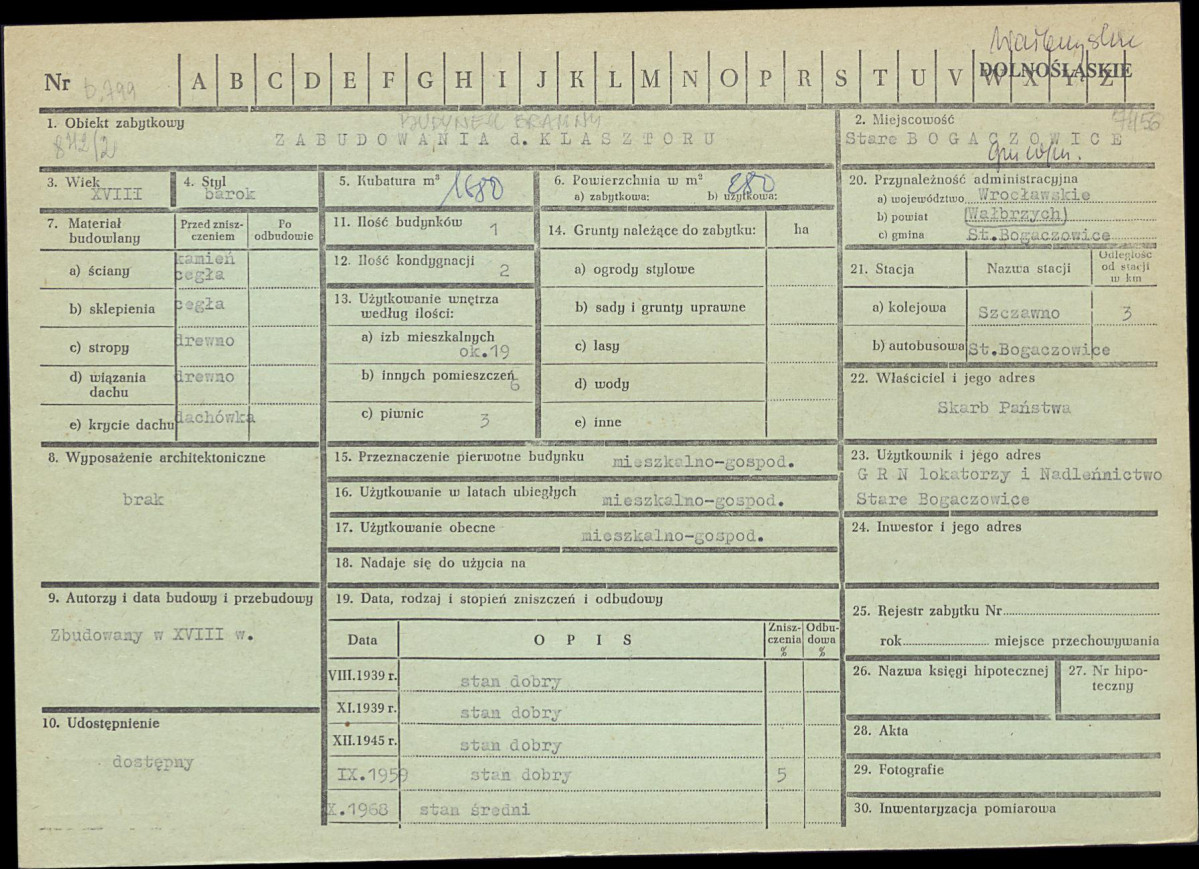 Nr b.799
A B C D E F G H I J K L M N O P R S T U V W X Y Z
DOLNOŚLĄSKIE
1. Obiekt zabytkowy
BUDYNEK BRAMNY
872/2
ZABUDOWANIA d. KLASZTORU
2. Miejscowość
Stare BOGACZOWICE
3. Wiek
XVIII
4. Styl
barok
5. Kubatura m³ 1680
6. Powierzchnia w m² 280
a) zabytkowa: b) użytkowa:
7. Materiał budowlany
Przed zniszczeniem
Po odbudowie
a) ściany
kamień
cegła
b) sklepienia cegła
c) stropy drewno
d) wiązania dachu drewno
e) krycie dachu dachówka
8. Wyposażenie architektoniczne
brak
9. Autorzy i data budowy i przebudowy
Zbudowany w XVIII w.
10. Udostępnienie
dostępny
11. Ilość budynków 1
12. Ilość kondygnacji 2
13. Użytkowanie wnętrza według ilości:
a) izb mieszkalnych
ok.19
b) innych pomieszczeń 6
c) piwnic 3
14. Grunty należące do zabytku: ha
a) ogrody stylowe
b) sady i grunty uprawne
c) lasy
d) wody
e) inne
15. Przeznaczenie pierwotne budynku mieszkalno-gospod.
16. Użytkowanie w latach ubiegłych mieszkalno-gospod.
17. Użytkowanie obecne mieszkalno-gospod.
18. Nadaje się do użycia na
19. Data, rodzaj i stopień zniszczeń i odbudowy
Data
OPIS
Zniszczenia %
Odbudowa %
VIII.1939 r. stan dobry
XI.1939 r. stan dobry
XII.1945 r. stan dobry
IX.1959 stan dobry 5
X.1968 stan średni
20. Przynależność administracyjna
a) województwo Wrocławskie
b) powiat (Wałbrzych)
c) gmina St.Bogaczowice
21. Stacja
Nazwa stacji
Odległość od stacji w km
a) kolejowa Szczawno 3
b) autobusowa St.Bogaczowice
22. Właściciel i jego adres
Skarb Państwa
23. Użytkownik i jego adres
G R N lokatorzy i Nadleńnictwo
Stare Bogaczowice
24. Inwestor i jego adres
25. Rejestr zabytku Nr
rok miejsce przechowywania
26. Nazwa księgi hipotecznej
27. Nr hipoteczny
28. Akta
29. Fotografie
30. Inwentaryzacja pomiarowa